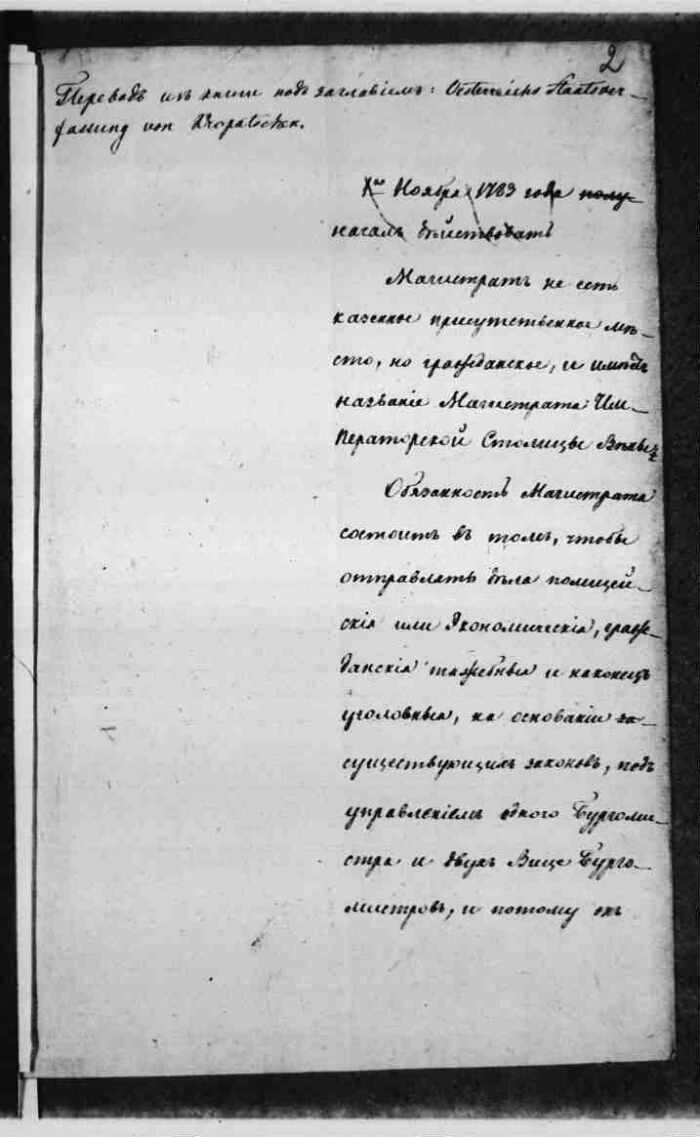 2
Переводъ изъ книги подъ заглавіемъ: Oesterreichs Staatsver-
fassung von Kropatschek.
Ноября 1783 года полу-
началъ дѣйствовать
Магистратъ не есть
казенное присутственное мѣ-
сто, но гражданское, и имѣетъ
названіе Магистрата Им-
ператорской Столицы Вѣны
Обязанность Магистрата
состоитъ въ томъ, чтобы
отправлять дѣла полицей-
скія или Экономическія, граж-
данскія тяжебныя и наконецъ
уголовныя, на основаніи за-
существующихъ законовъ, подъ
управленіемъ одного Бургоми-
стра и двухъ Вице Бурго-
мистровъ, и потому онъ